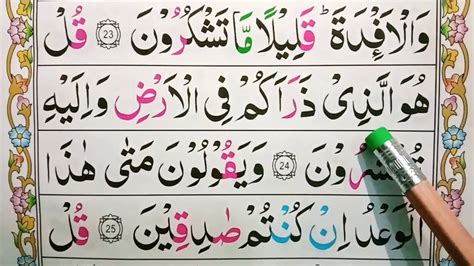 وَالْاَفْـِٕدَةَ ؕ قَلِيْلًا مَّا تَشْكُرُوْنَ ۝23 قُلْ
هُوَ الَّذِىْ ذَرَاَكُمْ فِى الْاَرْضِ وَاِلَيْهِ
تُحْشَرُوْنَ ۝24 وَيَقُوْلُوْنَ مَتٰى هٰذَا
الْوَعْدُ اِنْ كُنْتُمْ صٰدِقِيْنَ ۝25 قُلْ